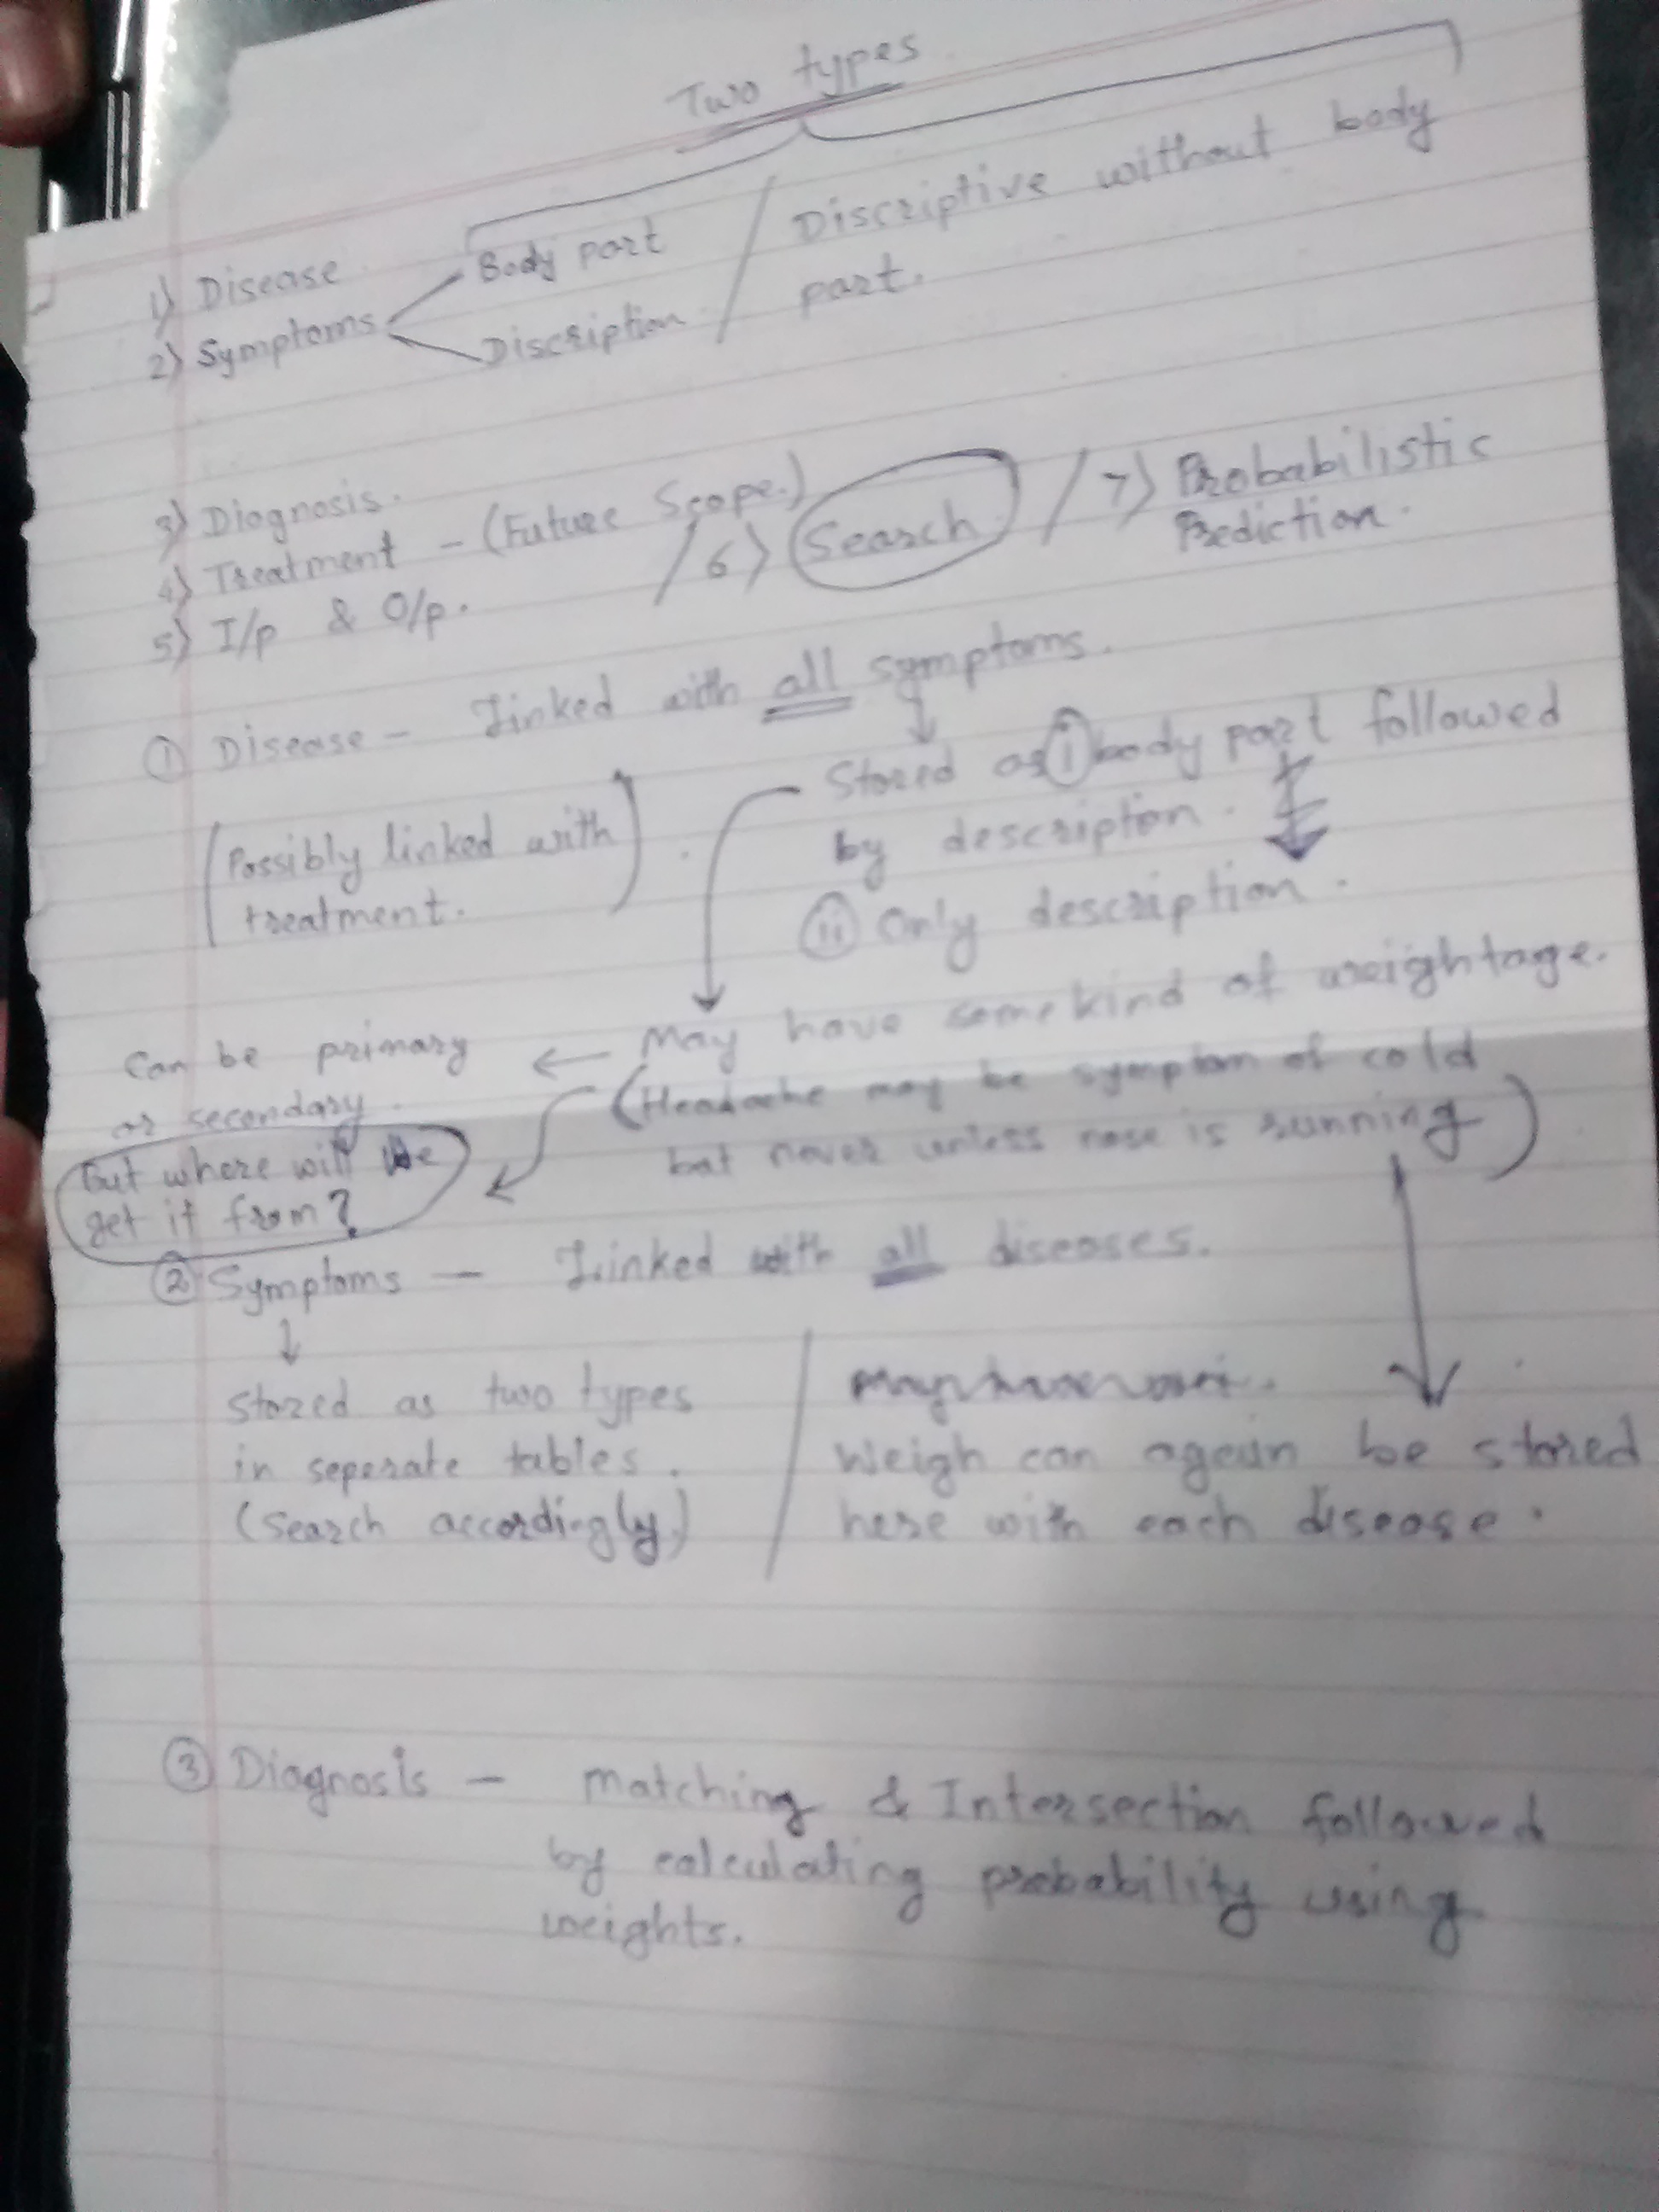 Two types
1) Disease
2) Symptoms
Body part
Discription
/ Discriptive without body
part.
3) Diagnosis.
4) Treatment - (Future Scope.)
5) I/p & O/p.
/ 6) Search
/ 7) Probabilistic
Prediction.
① Disease - Linked with all symptoms.
(Possibly linked with
treatment.)
Stored as ⓘ body part followed
by description.
ⓘⓘ Only description.
May have some kind of weightage.
(Headache may be symptom of cold
but never unless nose is running)
Can be primary
or secondary.
But where will we
get it from?
② Symptoms - Linked with all diseases.
↓
Stored as two types
in seperate tables.
(Search accordingly)
Weigh can again be stored
here with each disease.
③ Diagnosis - Matching & Intersection followed
by calculating probability using
weights.